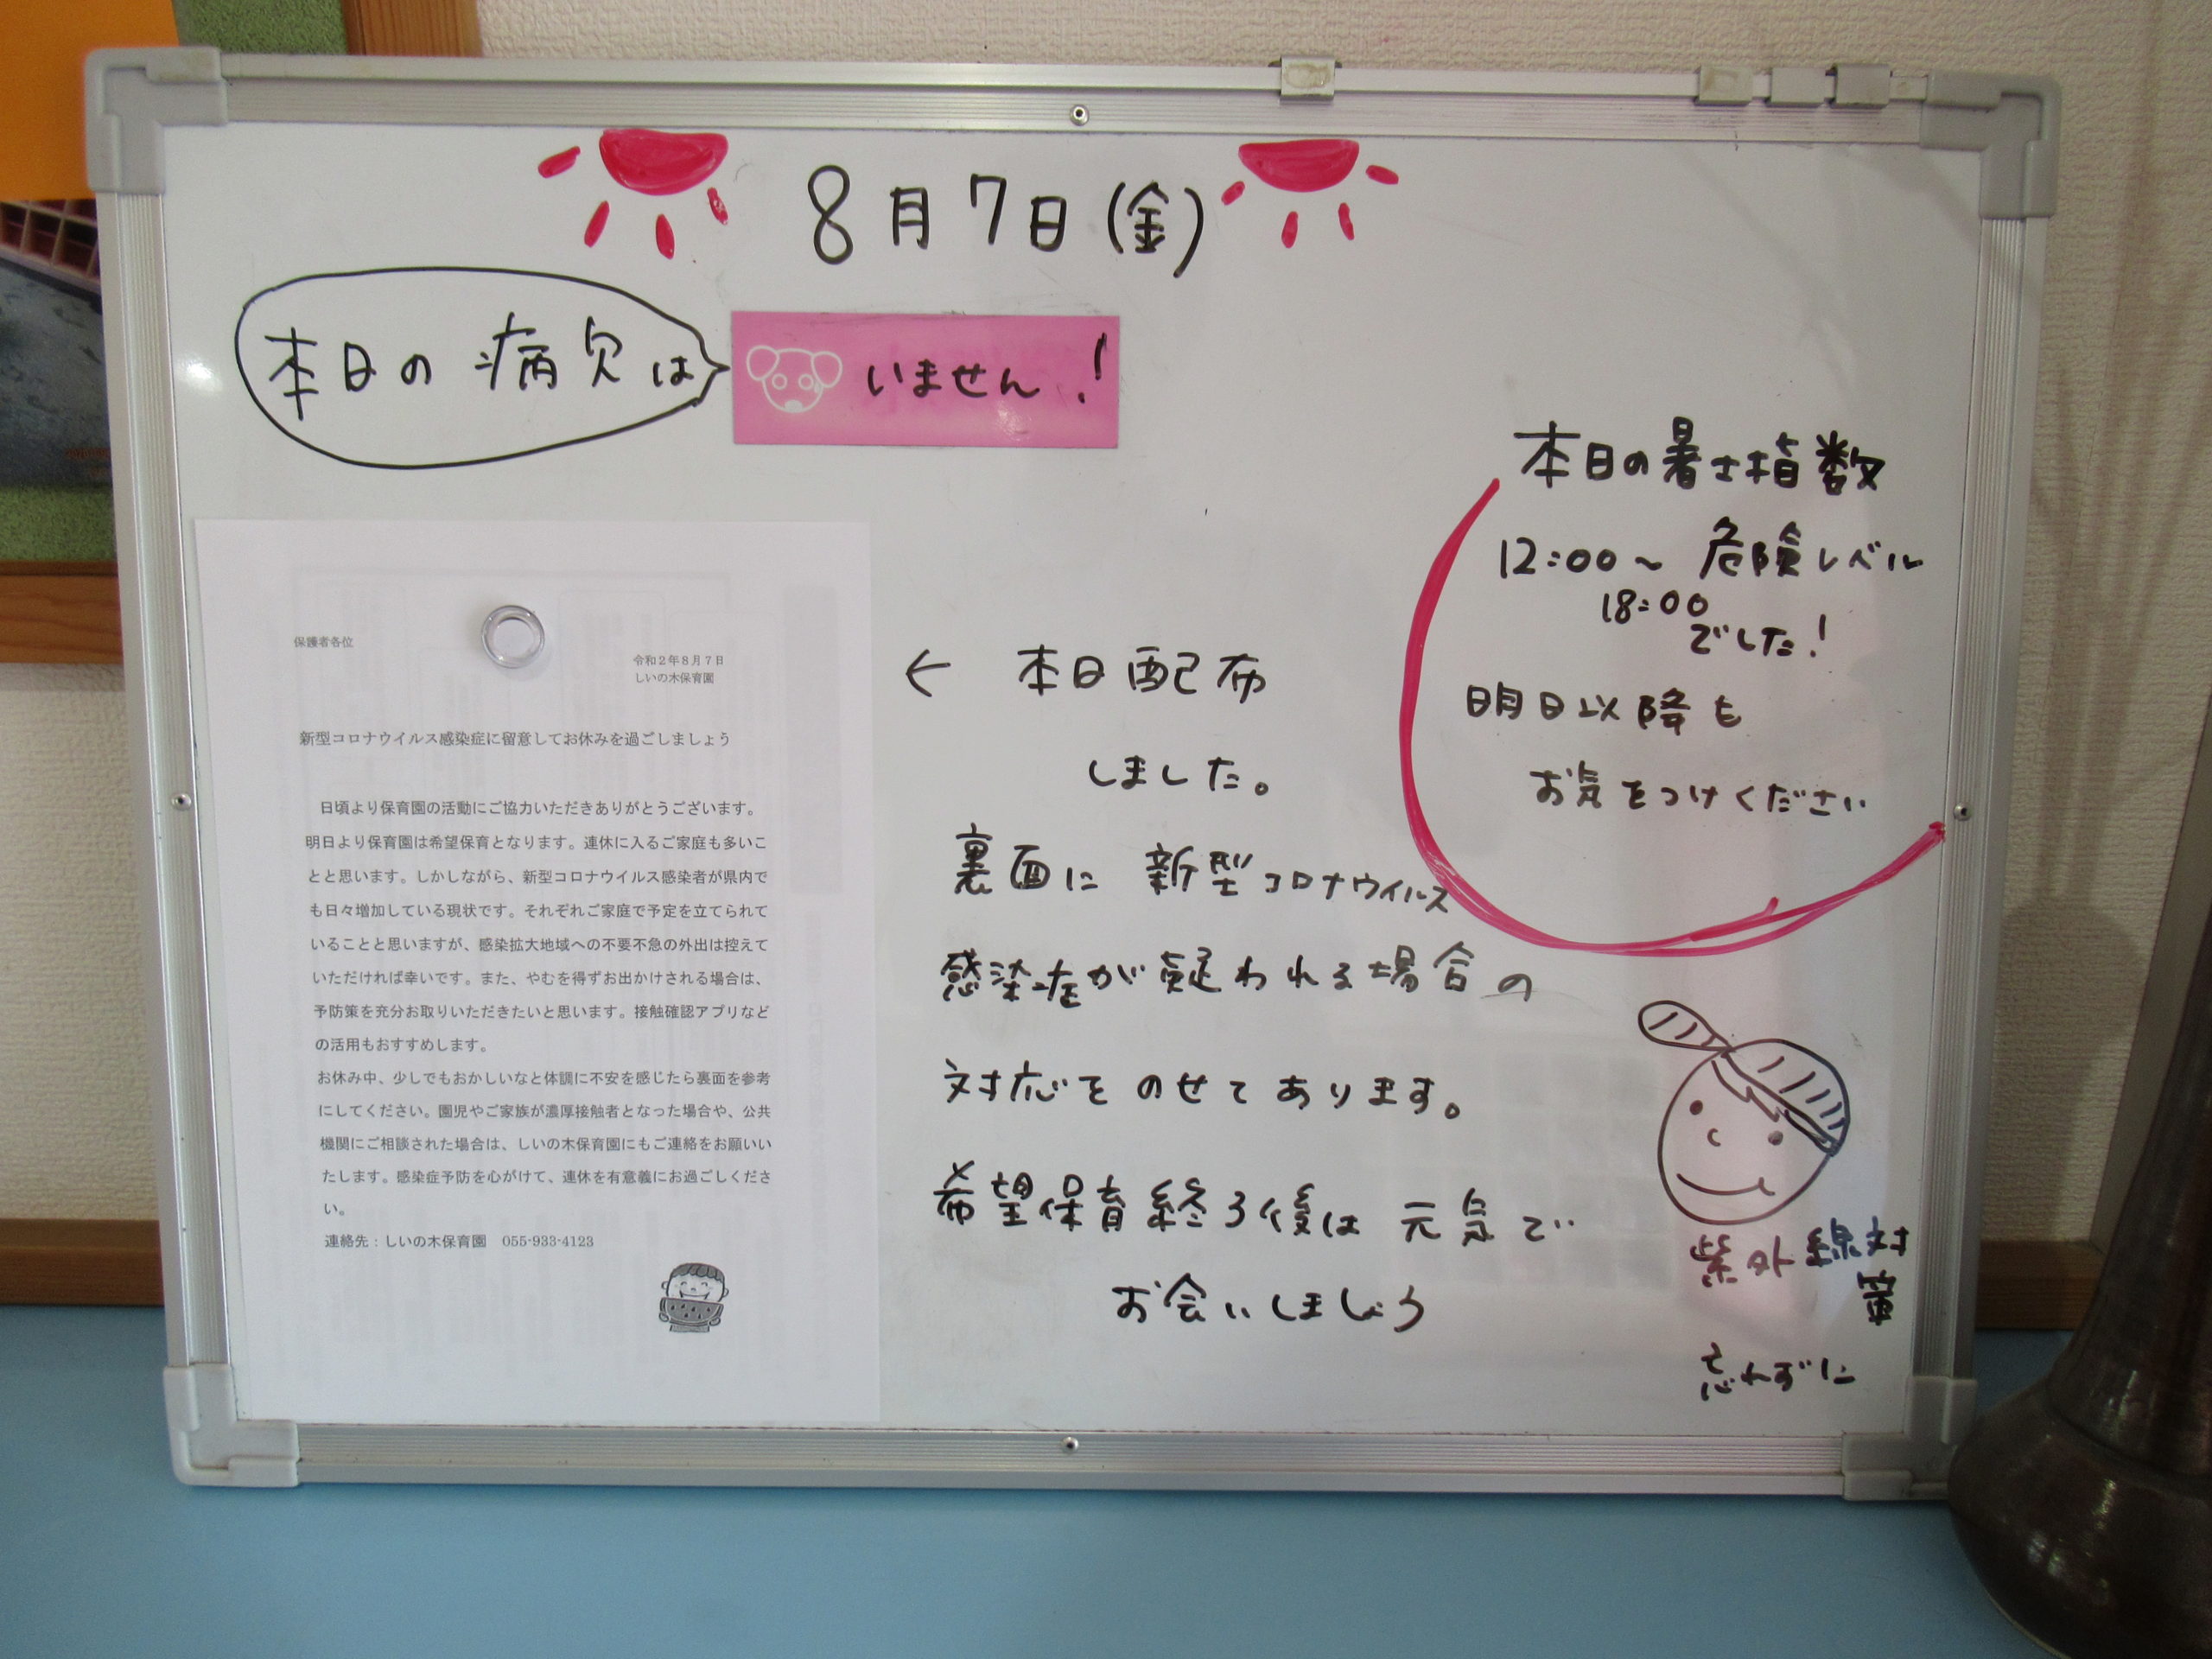 8月7日(金)
本日の病欠は
いません！
本日の暑さ指数
12:00～危険レベル
18:00
でした！
明日以降も
お気をつけください
保護者各位
令和２年８月７日
しいの木保育園
新型コロナウイルス感染症に留意してお休みを過ごしましょう
日頃より保育園の活動にご協力いただきありがとうございます。
明日より保育園は希望保育となります。連休に入るご家庭も多いこ
とと思います。しかしながら、新型コロナウイルス感染者が県内で
も日々増加している現状です。それぞれご家庭で予定を立てられて
いることと思いますが、感染拡大地域への不要不急の外出は控えて
いただければ幸いです。また、やむを得ずお出かけされる場合は、
予防策を充分お取りいただきたいと思います。接触確認アプリなど
の活用もおすすめします。
お休み中、少しでもおかしいなと体調に不安を感じたら裏面を参考
にしてください。園児やご家族が濃厚接触者となった場合や、公共
機関にご相談された場合は、しいの木保育園にもご連絡をお願いい
たします。感染症予防を心がけて、連休を有意義にお過ごしくださ
い。
連絡先：しいの木保育園　055-933-4123
← 本日配布
しました。
裏面に 新型コロナウイルス
感染症が疑われる場合の
対応をのせてあります。
希望保育終了後は 元気で
お会いしましょう
紫外線対
策
忘れずに